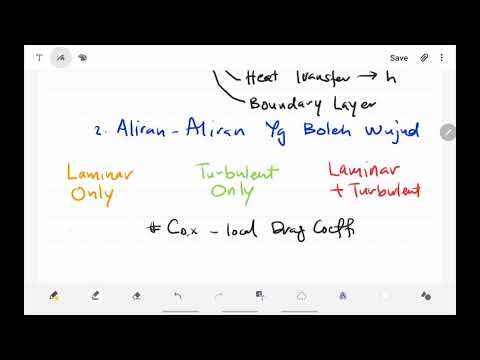 T
Save
Heat Transfer → h
Boundary Layer
2. Aliran-Aliran Yg Boleh Wujud
Laminar Only
Turbulent Only
Laminar + Turbulent
# CD,x - local Drag Coeffi
A